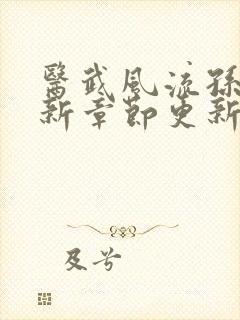 醫武風流孫
新章節更新
及兮